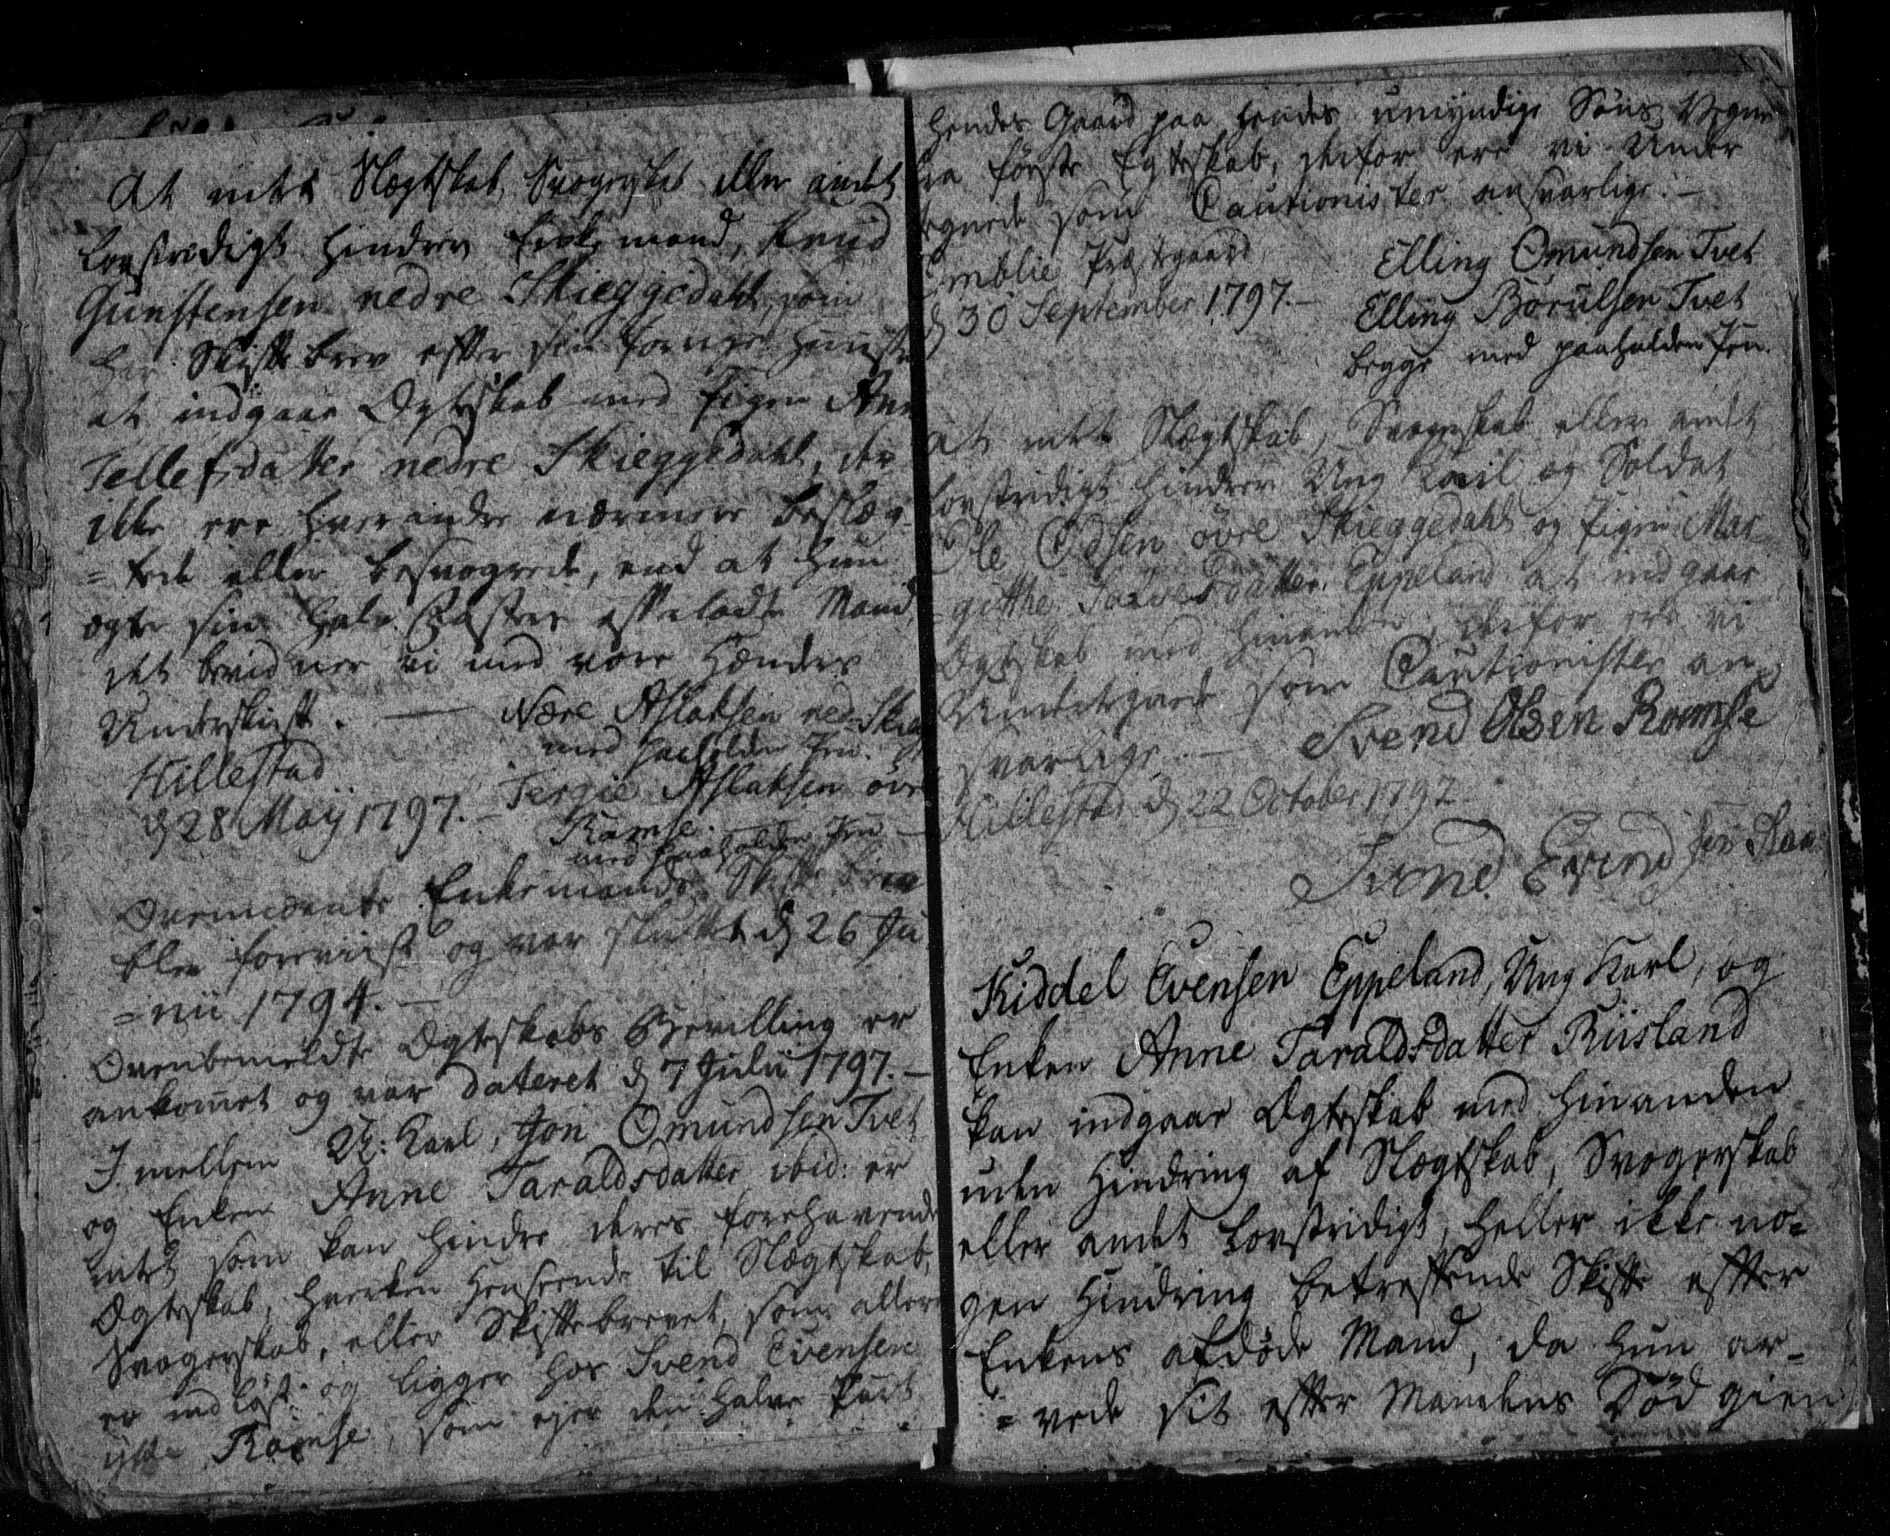 At intet Slægtskab, Svogerskab eller andet
lovstridigt hindrer Enkemand, Knud
Gunstensen nedre Skieggedahl, som
har Skiftebrev efter sin forrige Hustrue
at indgaae Ægteskab med Pigen Ann
Tellefsdatter nedre Skieggedahl, der
ikke ere hverandre nærmere beslæg-
= tede eller besvogrede, end at hun
ægter sin halv Søsters efterladte Mand,
det bevidner vi med vore Hænders
Underskrift. — Nære Aslaksen ned: Skieg
Hillestad med paaholden Pen.
d 28 Maij 1797. — Tergie Aslaksen øvre
Ramse.
med paaholden Pen —
Ovenmeldte Enkemands Skiftebrev
blev foreviist og var sluttet d 26 Ju
= nii 1794. —
Ovenbemeldte Ægteskabs Bevilling er
ankomet og var dateret d 7 Julii 1797. —
Imellem U: Karl, Jon Omundsen Tvet
og Enken Anne Taraldsdatter ibid: er
intet som kan hindre deres forehavende
Ægteskab, hverken henseende til Slægtskab,
Svogerskab, eller Skiftebrevet, som allere
er indløst og ligger hos Svend Evensen
ytre Ramse, som ejer den halve Part
hendes Gaard paa hendes umyndige Søns Vegne
fra første Egteskab, derfor ere vi Under
tegnede som Cautionister ansvarlige. —
Præstgaard, Elling Omundsen Tvet
d 30 September 1797. — Elling Børulsen Tvet
begge med paaholden Pen.
At intet Slægtskab, Svogerskab eller andet
lovstridigt hindrer Ung Karl og Soldat
Ole Odsen øvre Skieggedahl og Pigen Mar
= githe Salvesdatter Eppeland at indgaae
Ægteskab med hinanden, derfor ere vi
Undertegnede som Cautionister an
svarlige. — Svend Olsen Ramse
Hillestad d 22 October 1797
Svend Evensen Ram
Kiddel Evensen Eppeland, Ung Karl, og
Enken Anne Taraldsdatter Riisland
kan indgaae Ægteskab med hinanden
uden Hindring af Slægtskab, Svogerskab
eller andet lovstridigt, heller ikke no=
gen Hindring betreffende Skifte efter
Enkens afdøde Mand, da hun ar=
= vede sit efter Mandens Død gien